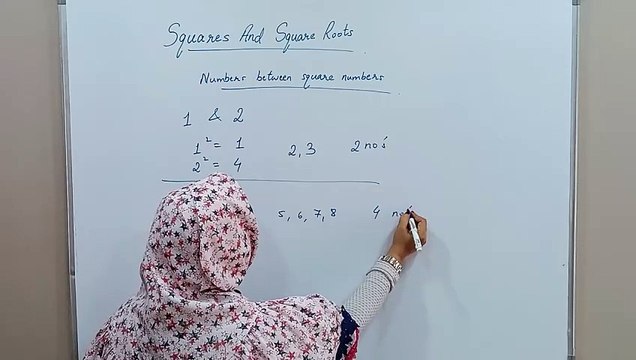 Squares And Square Roots
Numbers between square numbers
1 & 2
1² = 1 2, 3 2 no's
2² = 4
5, 6, 7, 8 4